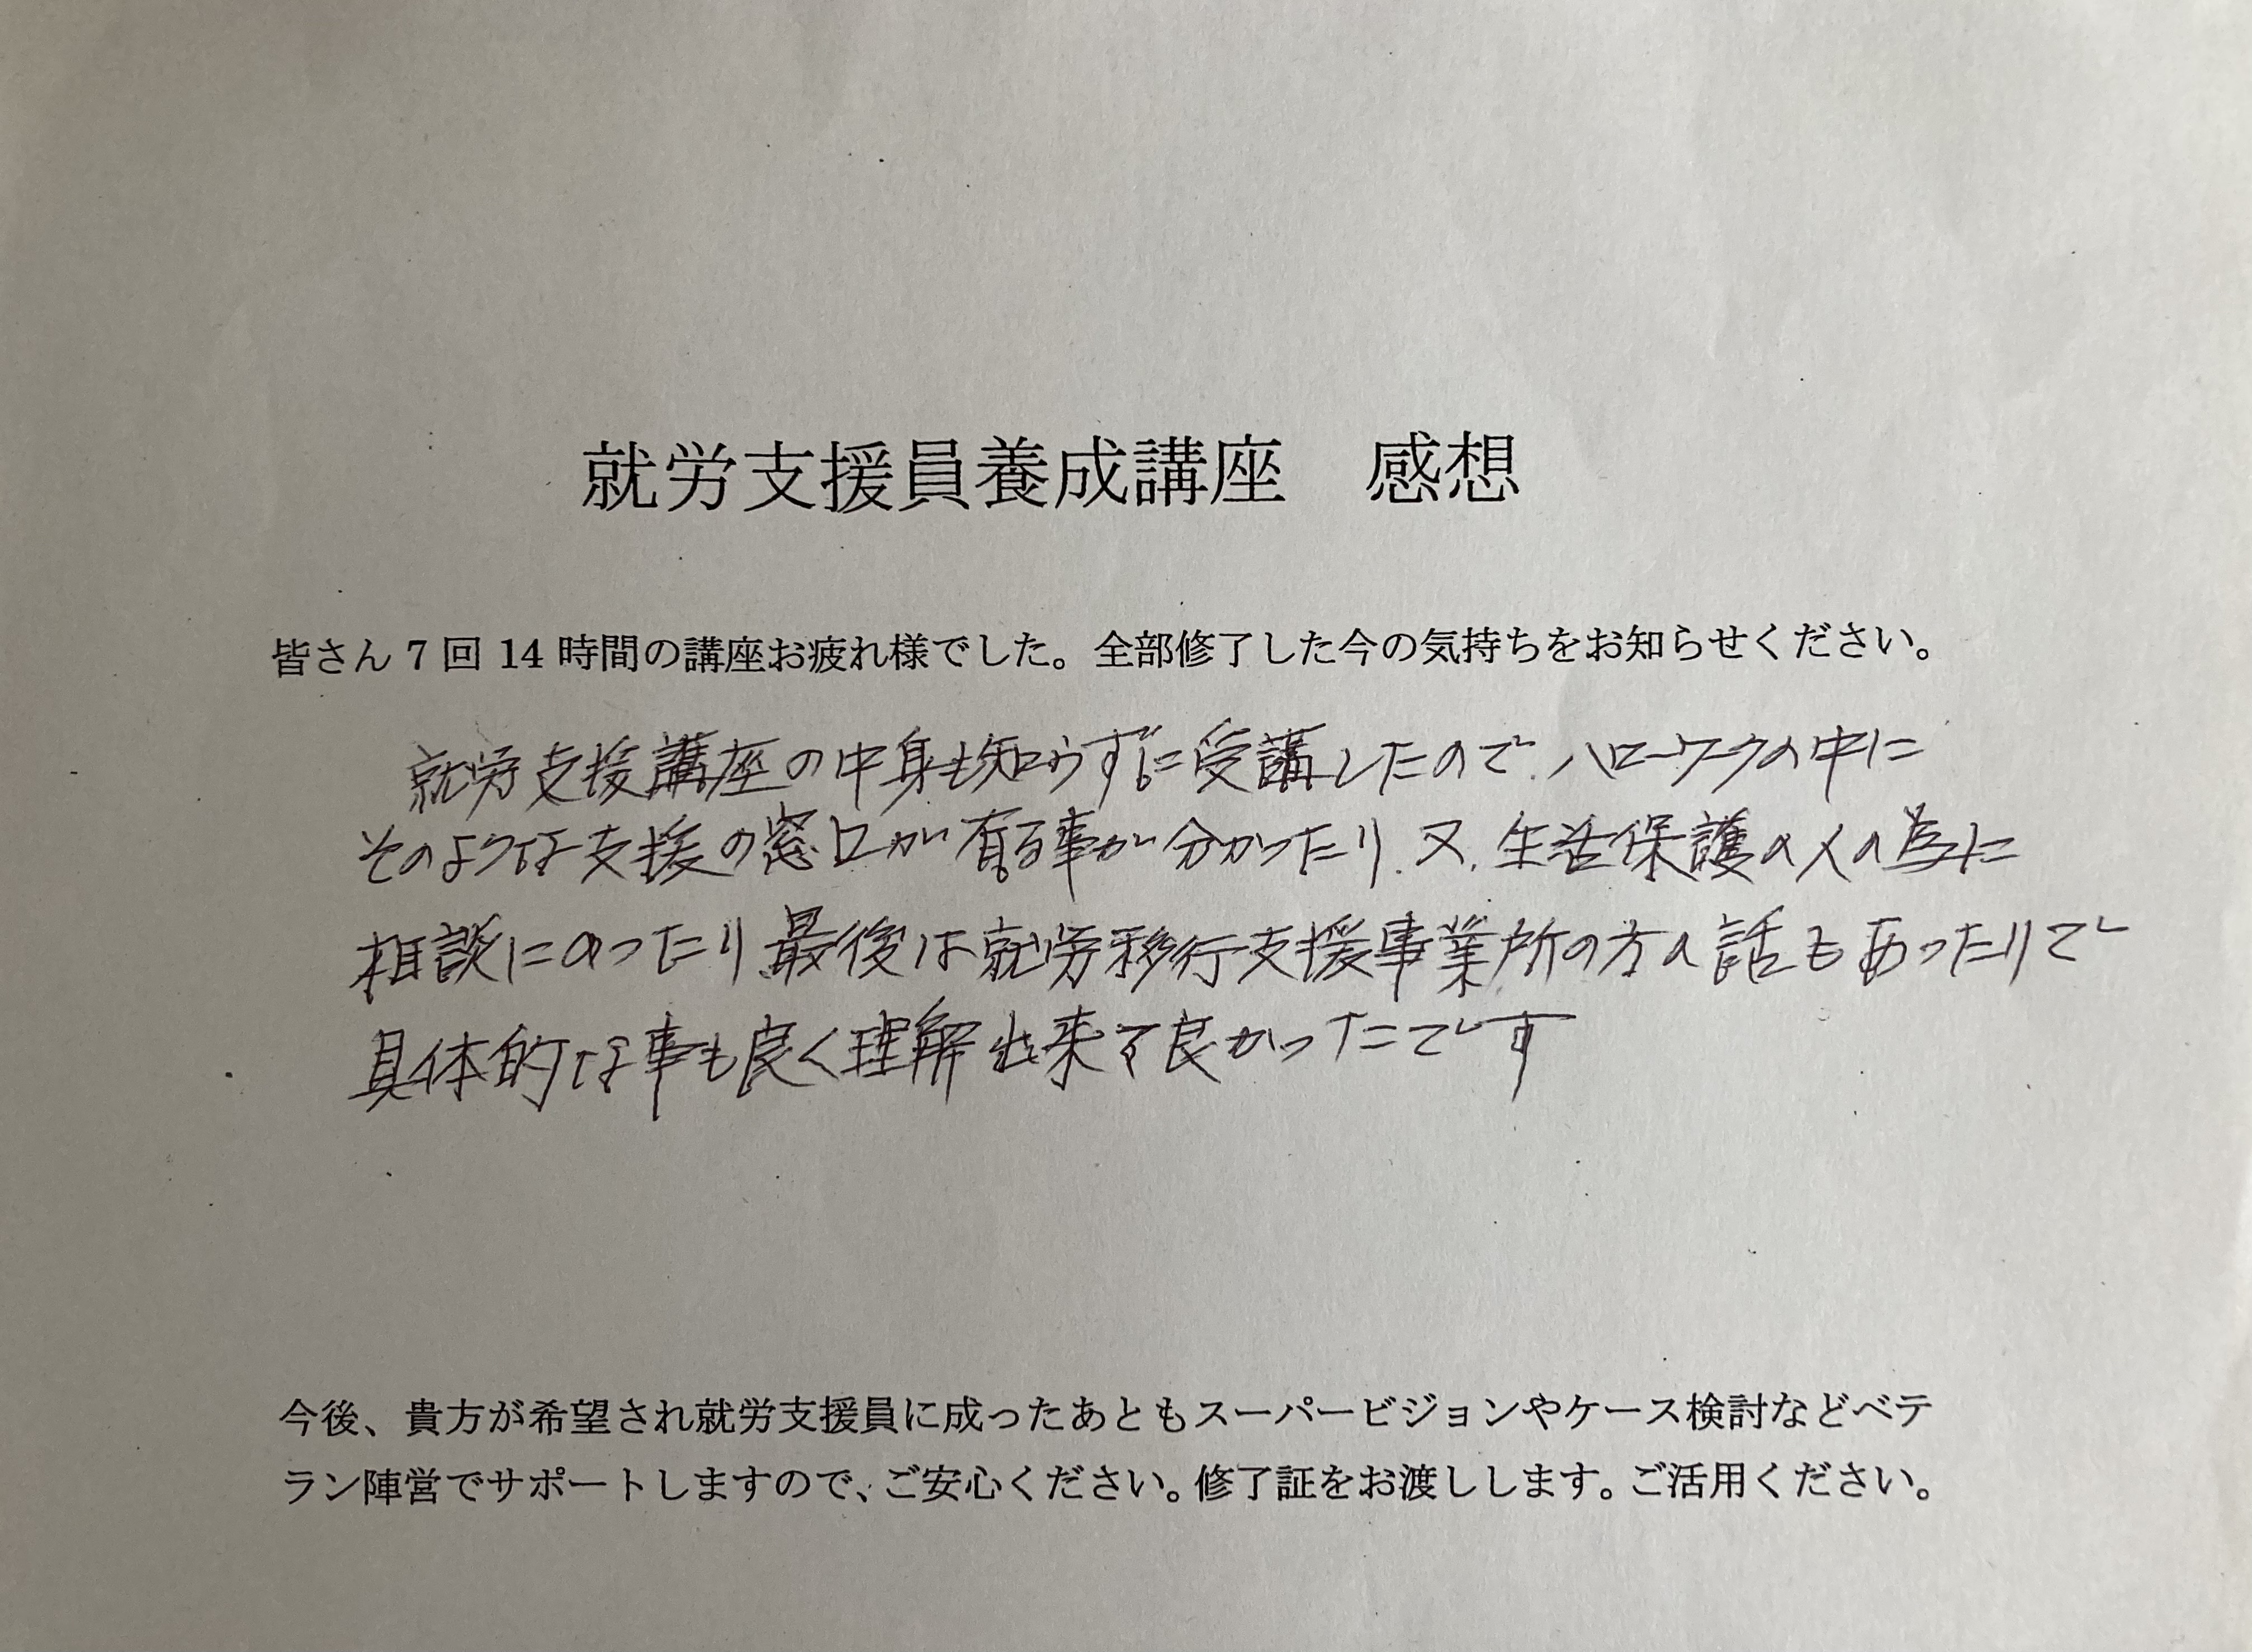 就労支援員養成講座　感想
皆さん 7 回 14 時間の講座お疲れ様でした。全部修了した今の気持ちをお知らせください。
就労支援講座の中身も知らずに受講したので、ハローワークの中に
そのような支援の窓口が有る事が分かったり、又、生活保護の人の為に
相談にのったり最後は就労移行支援事業所の方の話もあったりで
具体的な事も良く理解出来て良かったです
今後、貴方が希望され就労支援員に成ったあともスーパービジョンやケース検討などベテ
ラン陣営でサポートしますので、ご安心ください。修了証をお渡しします。ご活用ください。